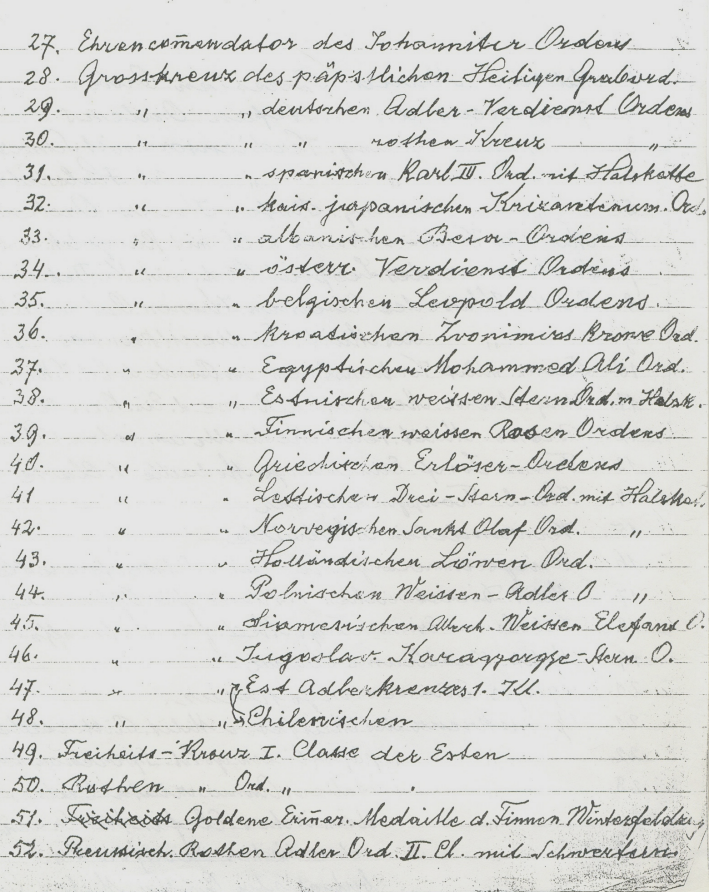 27. Ehrencom̄endator des Johanniter Ordens
28. Grosskreuz des päpstlichen Heiligen Grabord.
29. " " deutschen Adler-Verdienst Ordens
30. " " " rothen Kreuz "
31. " " spanischen Karl III. Ord. mit Halskette
32. " " kais. japanischen Krizantenum. Ord.
33. " " albanischen Besa-Ordens
34. " " österr. Verdienst Ordens
35. " " belgischen Leopold Ordens.
36. " " kroatischen Zvonimirs Krone Ord.
37. " " Egyptischen Mohammed Ali Ord.
38. " " Estnischen weissen Stern Ord. m Halsk.
39. " " Finnischen weissen Rosen Ordens
40. " " Griechischen Erlöser-Ordens
41 " " Lettischen Drei-Stern-Ord. mit Halsket.
42. " " Norvegischen Sankt Olaf Ord. "
43. " " Holländischen Löwen Ord.
44. " " Polnischen Weissen-Adler O "
45. " " Siamesischen Weissen Elefant O.
46. " " Jugoslav. Karagyorgye-Stern O.
47 " " Est Adlerkreuzes 1. Kl.
48. " " Chilenischen
49. Freiheits-Kreuz I. Classe der Esten
50. Rothen " Ord. "
51. Freiheits Goldene Erin̄er. Medaille d. Finnen Winterfeldzug
52. Preussisch Rothen Adler Ord II. Cl. mit Schwertern